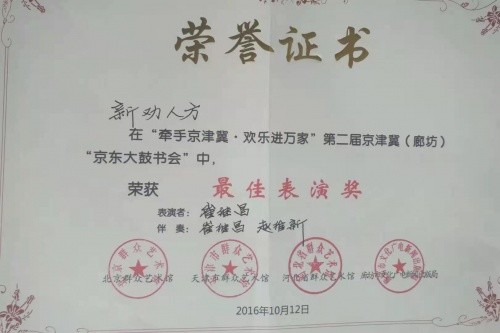 荣誉证书
新劝人方
在“牵手京津冀·欢乐进万家”第二届京津冀（廊坊）
“京东大鼓书会”中，
荣获 最佳表演奖
表演者：
伴 奏：
北京群众艺术馆 天津市群众艺术馆 河北省群众艺术馆 廊坊市文化广电新闻出版局
2016年10月12日